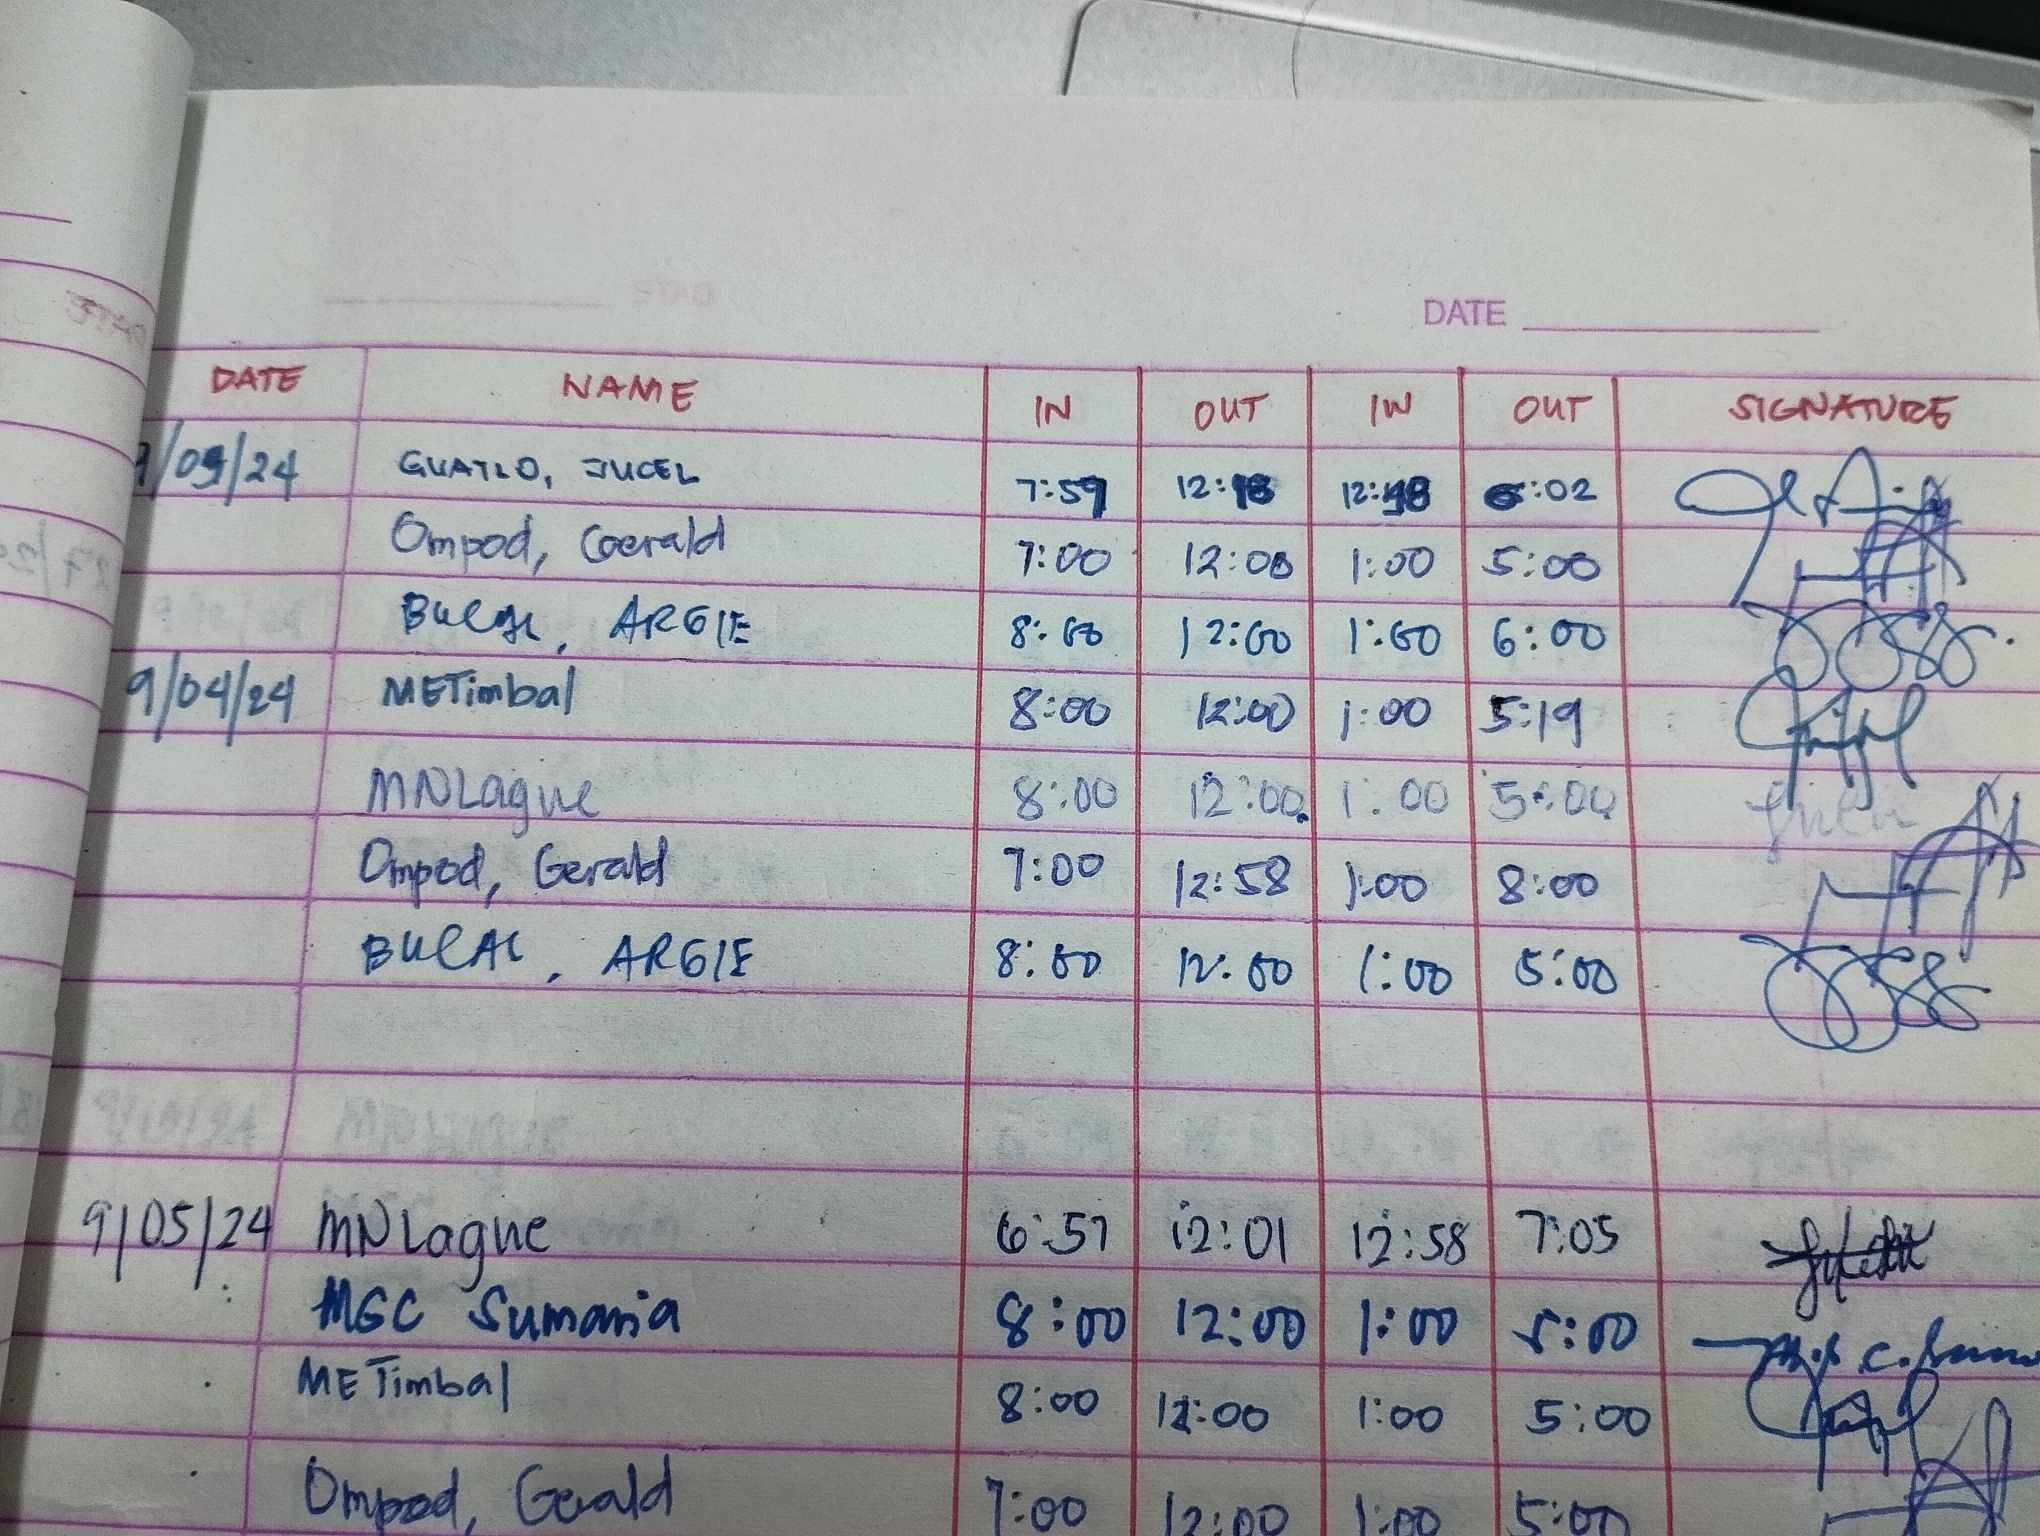 DATE
DATE NAME IN OUT IN OUT SIGNATURE
9/03/24 GUATLO, JUCEL 7:59 12:18 12:48 6:02
Ompod, Gerald 7:00 12:00 1:00 5:00
BULAL, ARGIE 8:00 12:00 1:00 6:00
9/04/24 METimbal 8:00 12:00 1:00 5:19
MNLague 8:00 12:00 1:00 5:00
Ompod, Gerald 7:00 12:58 1:00 8:00
BULAL, ARGIE 8:00 12:00 1:00 5:00
9/05/24 MNLague 6:57 12:01 12:58 7:05
MGC Sumania 8:00 12:00 1:00 5:00
METimbal 8:00 12:00 1:00 5:00
Ompod, Gerald 7:00 12:00 1:00 5:00